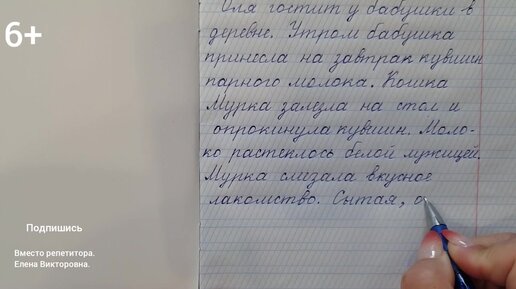 6+
Оля гостит у бабушки в
деревне. Утром бабушка
принесла на завтрак кувшин
парного молока. Кошка
Мурка залезла на стол и
опрокинула кувшин. Моло-
ко растеклось белой лужицей.
Мурка слизала вкусное
лакомство. Сытая, о
Подпишись
Вместо репетитора.
Елена Викторовна.